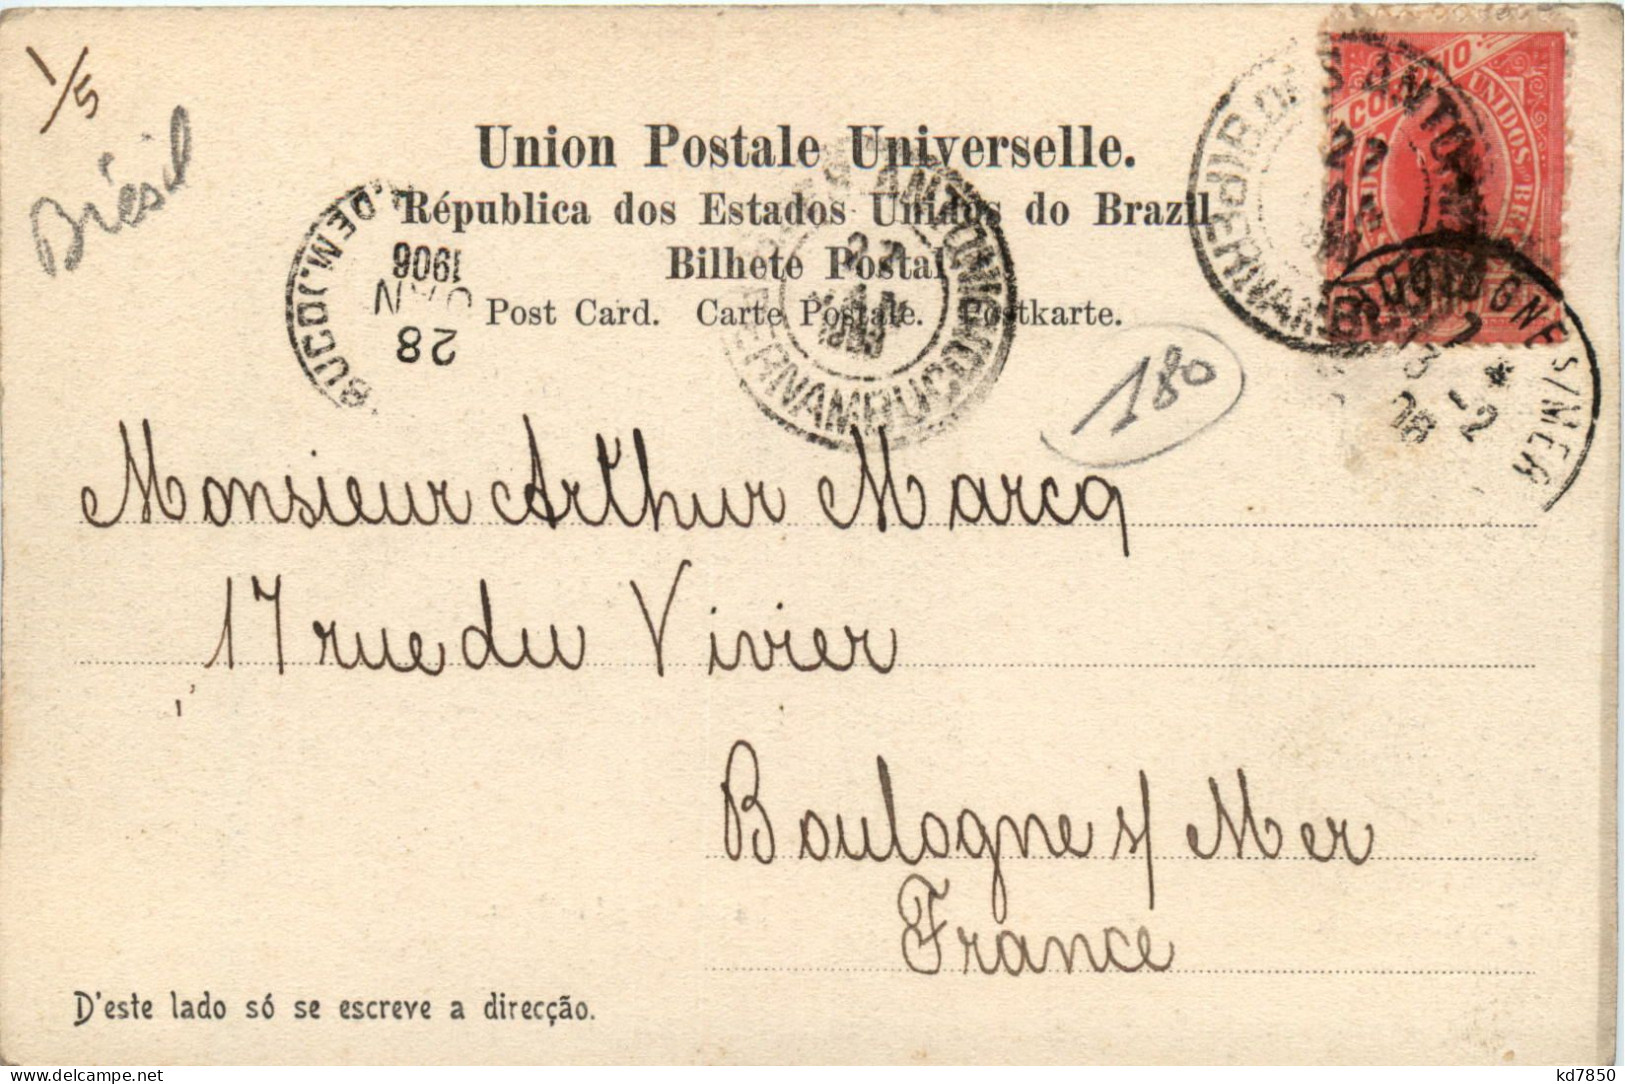 1/5
Brésil
Union Postale Universelle.
República dos Estados Unidos do Brazil
Bilhete Postal
Post Card. Carte Postale. Postkarte.
1906
JAN
28
S ANTONIO
PERNAMBUCO
180
CORREIO
UNIDOS
BOULOGNE S/MER
Monsieur Arthur Marcq
17 rue du Vivier
Boulogne s/ Mer
France
D'este lado só se escreve a direcção.
kd7850